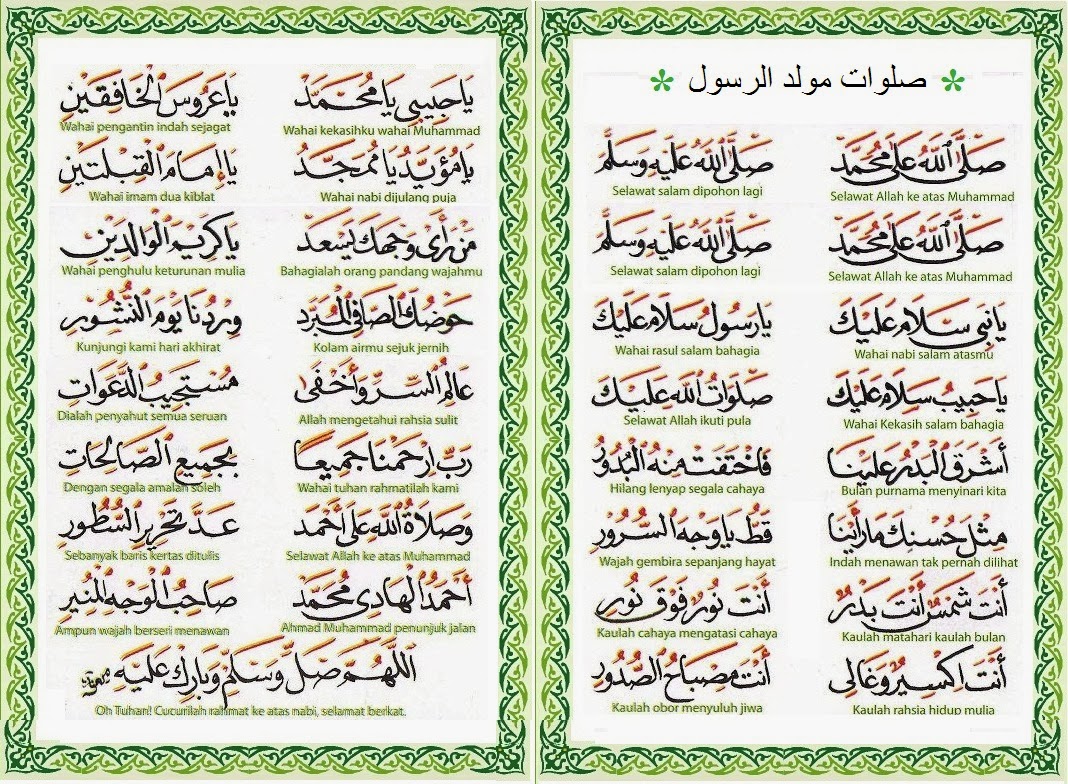 صلوات مولد الرسول
صَلَّى اللهُ عَلَى مُحَمَّدْ
Selawat Allah ke atas Muhammad
صَلَّى اللهُ عَلَيْهِ وَسَلَّمْ
Selawat salam dipohon lagi
صَلَّى اللهُ عَلَى مُحَمَّدْ
Selawat Allah ke atas Muhammad
صَلَّى اللهُ عَلَيْهِ وَسَلَّمْ
Selawat salam dipohon lagi
يَانَبِي سَلَامْ عَلَيْكَ
Wahai nabi salam atasmu
يَارَسُولْ سَلَامْ عَلَيْكَ
Wahai rasul salam bahagia
يَاحَبِيبْ سَلَامْ عَلَيْكَ
Wahai Kekasih salam bahagia
صَلَوَاتُ اللهْ عَلَيْكَ
Selawat Allah ikuti pula
أَشْرَقَ الْبَدْرُ عَلَيْنَا
Bulan purnama menyinari kita
فَاخْتَفَتْ مِنْهُ الْبُدُورُ
Hilang lenyap segala cahaya
مِثْلَ حُسْنِكْ مَارَأَيْنَا
Indah menawan tak pernah dilihat
قَطُّ يَاوَجْهَ السُّرُورِ
Wajah gembira sepanjang hayat
أَنْتَ شَمْسٌ أَنْتَ بَدْرٌ
Kaulah matahari kaulah bulan
أَنْتَ نُورٌ فَوْقَ نُورِ
Kaulah cahaya mengatasi cahaya
أَنْتَ اِكْسِيرٌ وَغَالِى
Kaulah rahsia hidup mulia
أَنْتَ مِصْبَاحُ الصُّدُورِ
Kaulah obor menyuluh jiwa
يَاحَبِيبِى يَامُحَمَّدْ
Wahai kekasihku wahai Muhammad
يَاعَرُوسَ الْخَافِقَيْنِ
Wahai pengantin indah sejagat
يَامُؤَيَّدْ يَامُمَجَّدْ
Wahai nabi dijulang puja
يَاإِمَامَ الْقِبْلَتَيْنِ
Wahai imam dua kiblat
مَنْ رَأَى وَجْهَكَ يَسْعَدْ
Bahagialah orang pandang wajahmu
يَاكَرِيمَ الْوَالِدَيْنِ
Wahai penghulu keturunan mulia
حَوْضُكَ الصَّافِى الْمُبَرَّدْ
Kolam airmu sejuk jernih
وِرْدُنَا يَوْمَ النُّشُورِ
Kunjungi kami hari akhirat
عَالِمُ السِّرِّ وَأَخْفَى
Allah mengetahui rahsia sulit
مُسْتَجِيبُ الدَّعَوَاتِ
Dialah penyahut semua seruan
رَبِّ ارْحَمْنَا جَمِيعًا
Wahai tuhan rahmatilah kami
بِجَمِيعِ الصَّالِحَاتِ
Dengan segala amalan soleh
وَصَلَاةُ اللهِ عَلَى أَحْمَدْ
Selawat Allah ke atas Muhammad
عَدَّ تَحْرِيرِ السُّطُورِ
Sebanyak baris kertas ditulis
أَحْمَدُ الْهَادِى مُحَمَّدْ
Ahmad Muhammad penunjuk jalan
صَاحِبُ الْوَجْهِ الْمُنِيرِ
Ampun wajah berseri menawan
اَللّٰهُمَّ صَلِّ وَسَلِّمْ وَبَارِكْ عَلَيْهِ
Oh Tuhan! Cucurilah rahmat ke atas nabi, selamat berkat.